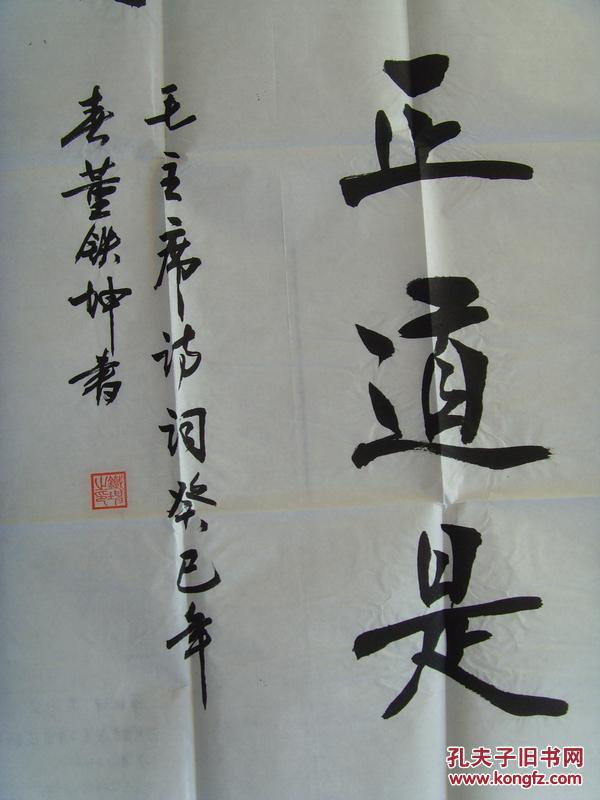 正道是
毛主席诗词癸巳年
春董铁坤书
孔夫子旧书网
www.kongfz.com